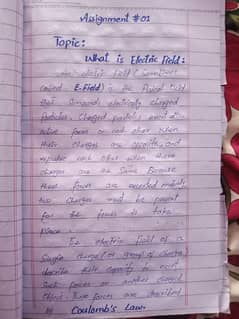 Assignment #01
Topic:
What is Electric Field:
An electric field (sometimes
called E-Field) is the physical field
that surrounds electrically charged
particles. Charged particles exert
active forces on each other when
their charges are opposite, and
repulse each other when their
charges are the same. Because
these forces are exerted mutually
two charges must be present
for the forces to take
place.
The electric field of a
single charge (or group of charges)
describe their capacity to exert
such forces on another charged
object. These forces are described
by Coulomb's Law.